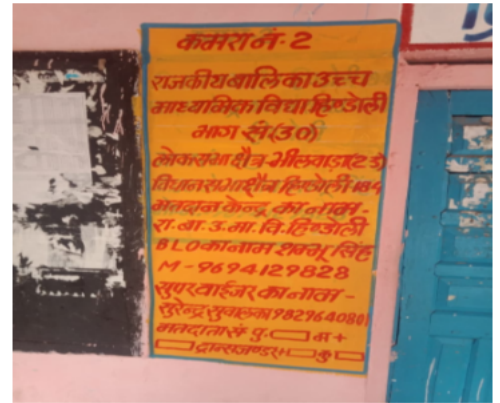 कमरा नं.- 2
राजकीय बालिका उच्च
माध्यमिक विद्या हिण्डोली
भाग सं (30)
लोकसभा क्षैत्र-भीलवाडा (23)
विधानसभा क्षैत्र हिण्डोली 184
मतदान केन्द्र का नाम -
रा. बा. उ. मा. वि. हिण्डोली
BLO का नाम शम्भू सिंह
M - 9694129828
सुपरवाईजर का नाम -
सुरेन्द्र सुवालका 9829640801
मतदाता सं पु. म +
ट्रान्सजेण्डर + कु